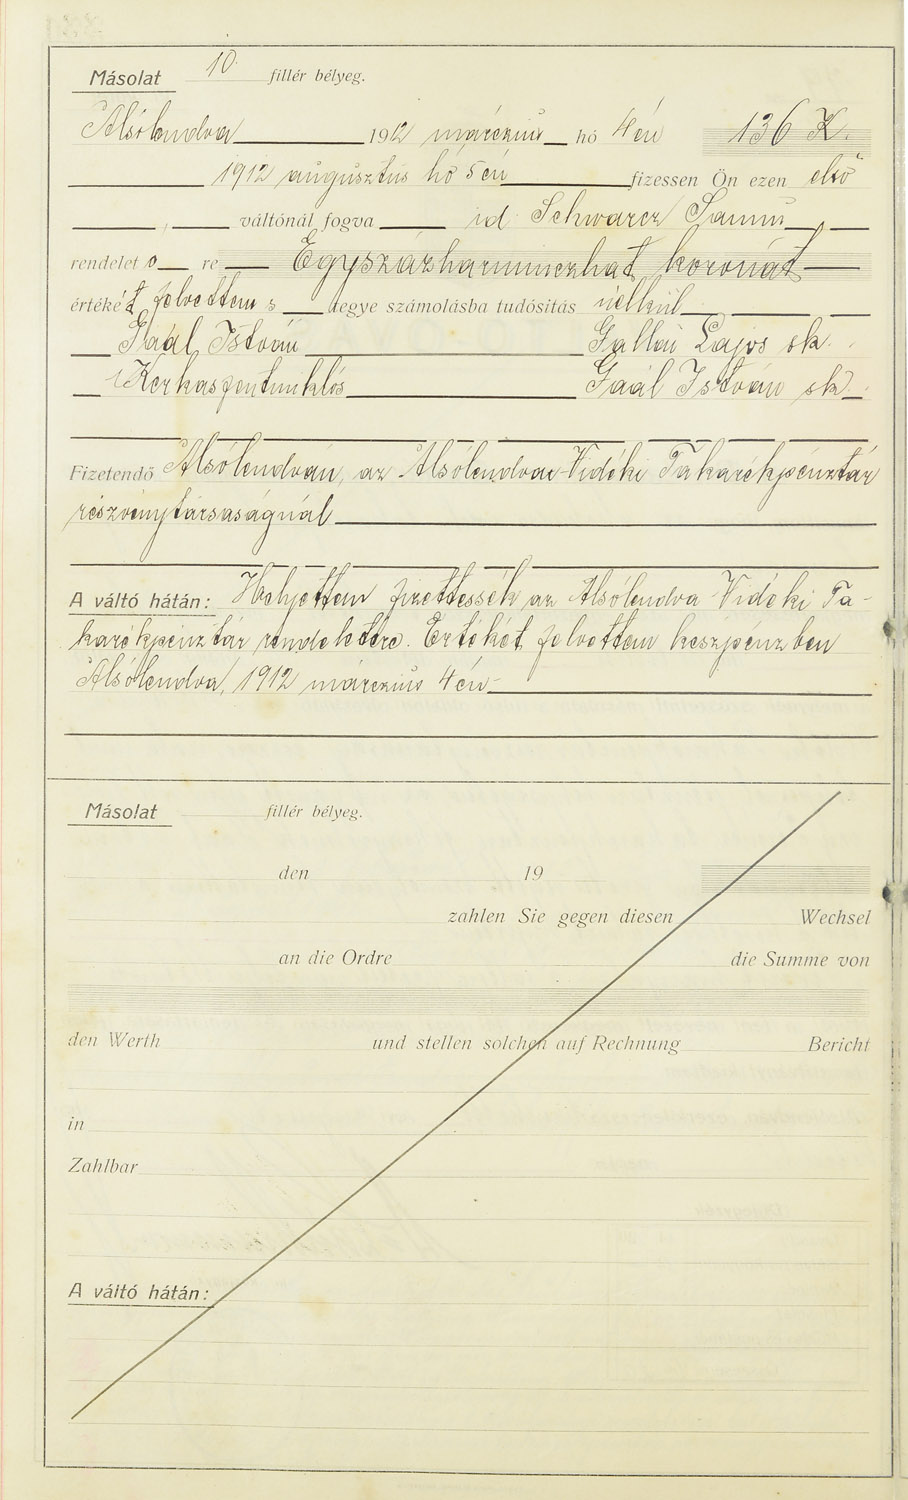 Másolat 10 fillér bélyeg.
Alsólendva 1912 március hó 4én 136 K.
1912 augusztus hó 5én fizessen Ön ezen első
váltónál fogva id. Schwarcz Samu
rendelet o re Egyszázharminczhat koronát
értékét felvettem s tegye számolásba tudósítás nélkül
Gaál István Gallai Lajos sk.
Kerkaszentmiklós Gaál István sk.
Fizetendő Alsólendván, az Alsólendva-Vidéki Takarékpénztár
részvénytársaságnál
A váltó hátán: Helyettem fizettessék az Alsólendva Vidéki Ta-
karékpénztár rendeletére. Értékét felvettem készpénzben
Alsólendva, 1912 március 4én
Másolat fillér bélyeg.
den 19
zahlen Sie gegen diesen Wechsel
an die Ordre die Summe von
den Werth und stellen solchen auf Rechnung Bericht
in
Zahlbar
A váltó hátán: